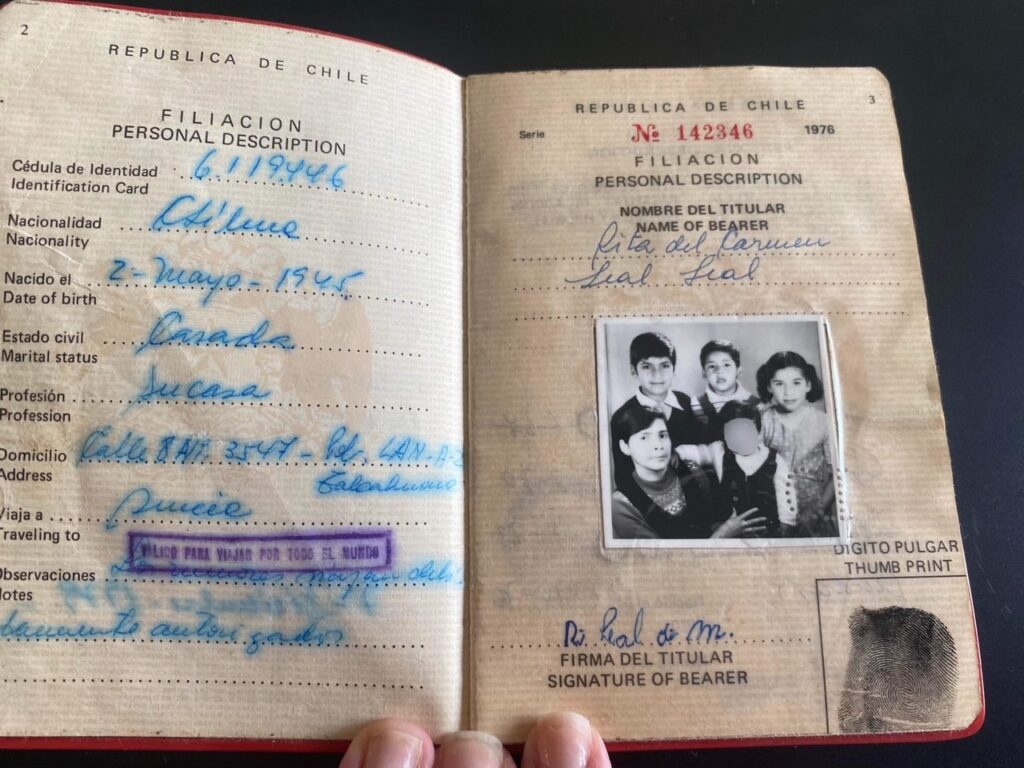 2
REPUBLICA DE CHILE
FILIACION
PERSONAL DESCRIPTION
Cédula de Identidad 6.119.446
Identification Card
Nacionalidad Chilena
Nacionality
Nacido el 2 - Mayo - 1945
Date of birth
Estado civil Casada
Marital status
Profesión Su casa
Profession
Domicilio Calle 8 3547 - Pob.
Address Talcahuano
Viaja a Suecia
Traveling to
VALIDO PARA VIAJAR POR TODO EL MUNDO
Observaciones menores viajan debi
Notes
damente autorizados
3
REPUBLICA DE CHILE
Serie Nº 142346 1976
FILIACION
PERSONAL DESCRIPTION
NOMBRE DEL TITULAR
NAME OF BEARER
Rita del Carmen
Leal Leal
DIGITO PULGAR
THUMB PRINT
R. Leal de M.
FIRMA DEL TITULAR
SIGNATURE OF BEARER